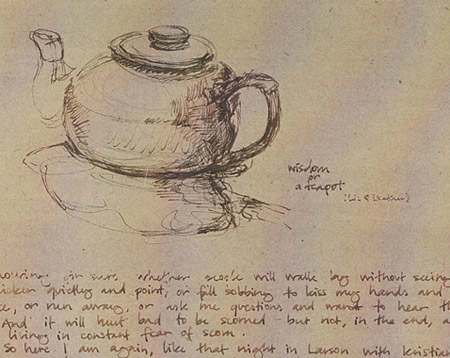 wisdom
or
a teapot
whether people will walk by without seeing
quietly and point, or fall sobbing to kiss my hands and
or run away, or ask me questions and to hear
And it will hurt bad to be scorned but not, in the end, a
living in constant fear of scorn.
So here I am again, like that night in with